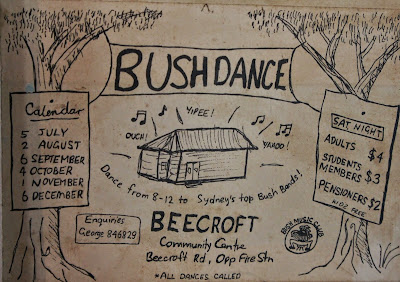 BUSHDANCE
Calendar
5 JULY
2 AUGUST
6 SEPTEMBER
4 OCTOBER
1 NOVEMBER
6 DECEMBER
YIPEE!
OUCH!
YAHOO!
Dance from 8-12 to Sydney's top Bush Bands!
SAT NIGHT
ADULTS $4
STUDENTS
MEMBERS $3
PENSIONERS $2
KIDZ FREE
Enquiries
George 846829
BEECROFT
Community Centre
Beecroft Rd, Opp Fire Stn
*ALL DANCES CALLED
BUSH MUSIC CLUB